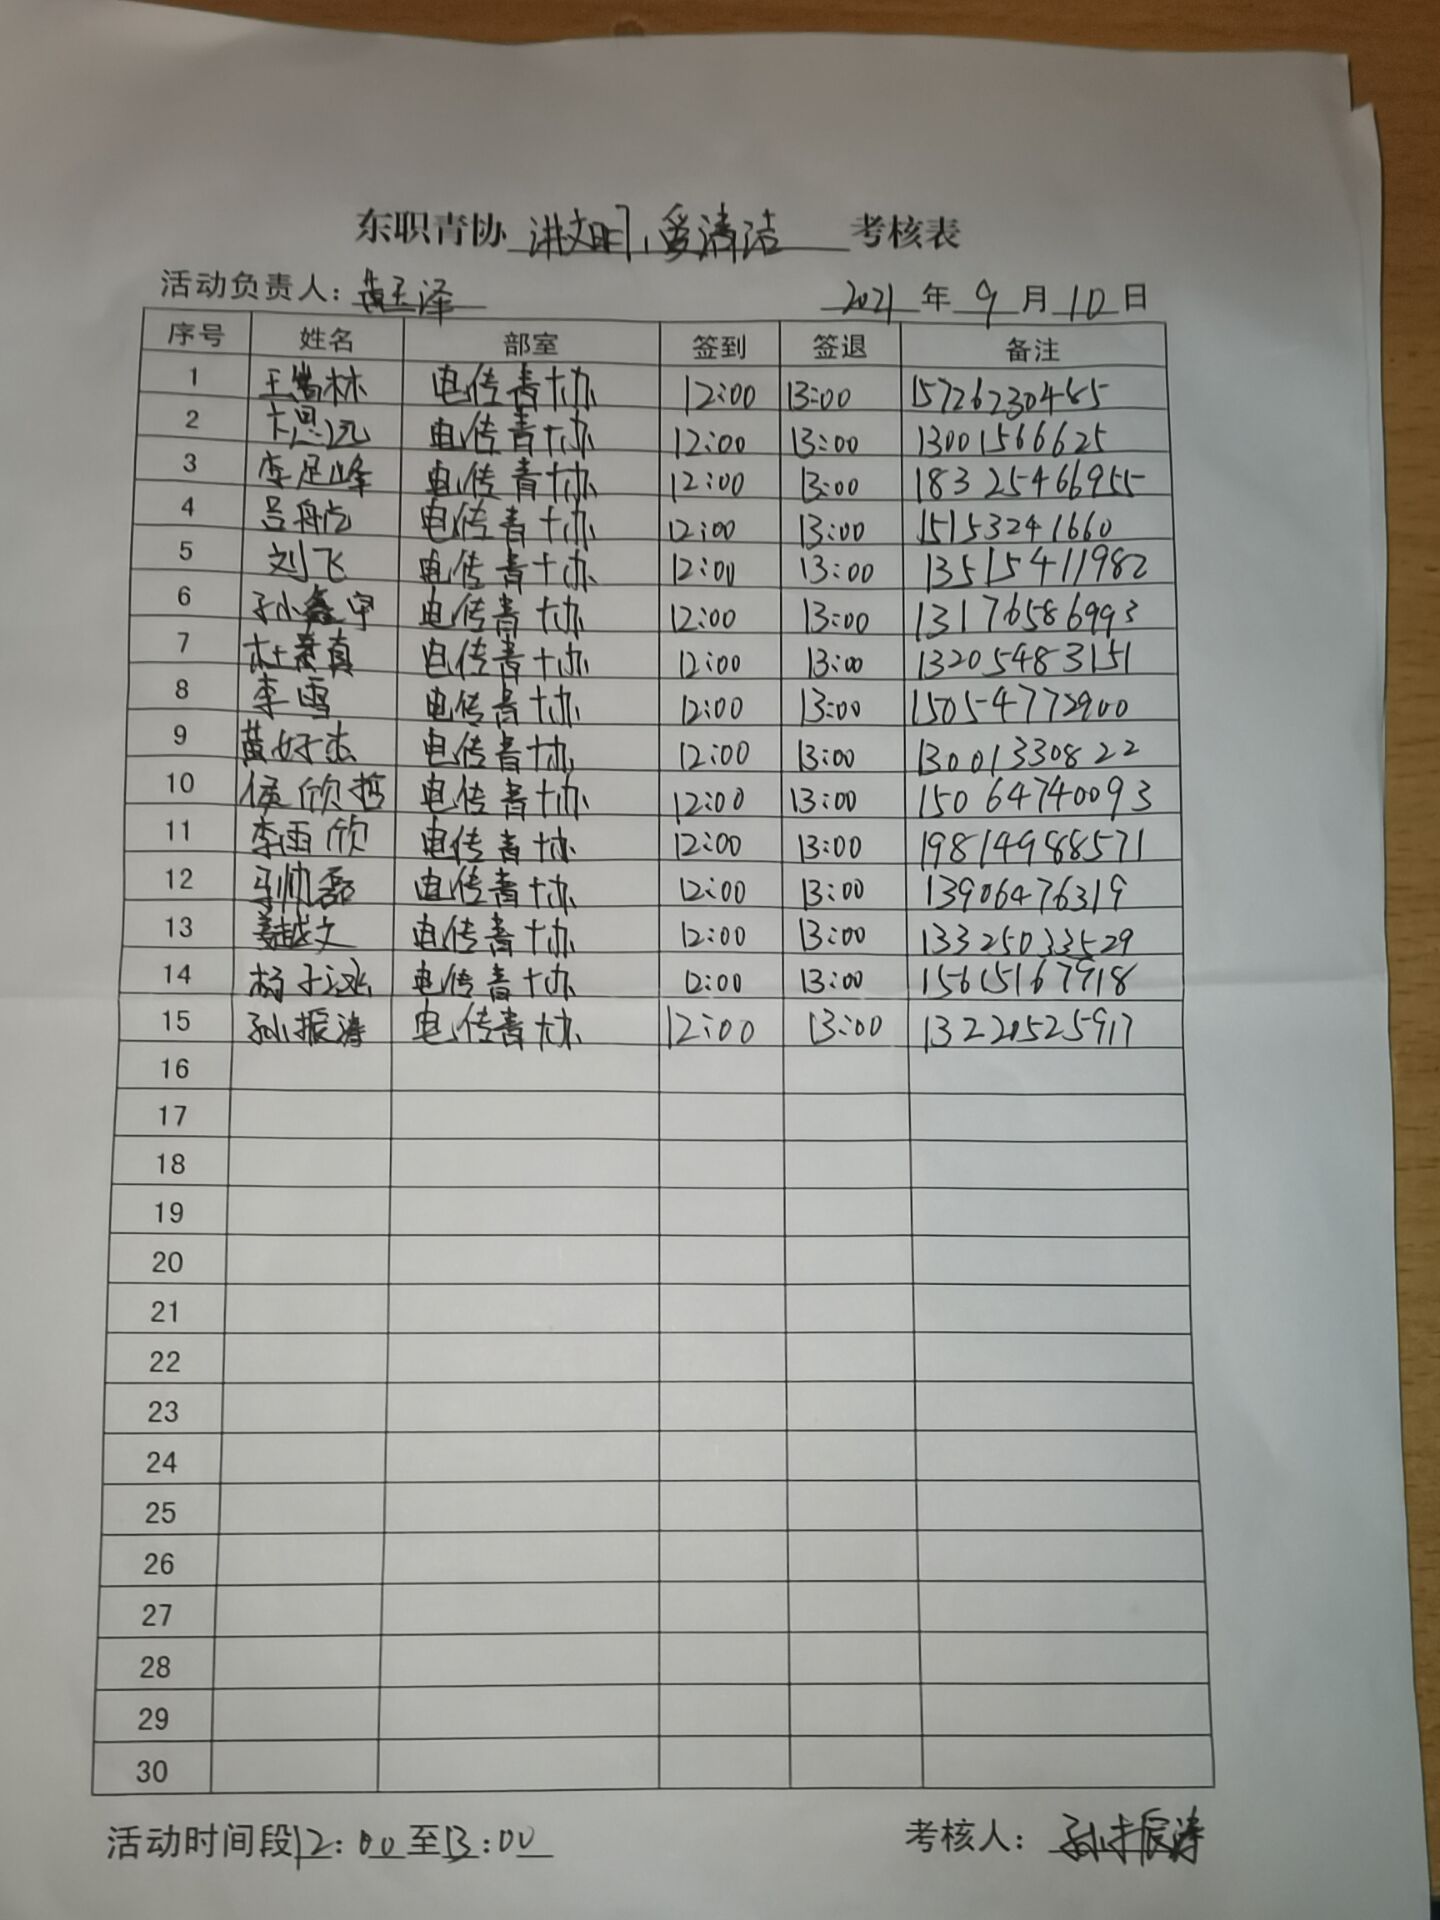 东职青协 讲文明,爱清洁 考核表
活动负责人: 黄玉泽 2021 年 9 月 10 日
序号 姓名 部室 签到 签退 备注
1 林 电传青协 12:00 13:00 15726230485
2 卞思远 电传青协 12:00 13:00 13001566625
3 李足峰 电传青协 12:00 13:00 18325466955
4 吕舟 电传青协 12:00 13:00 15153241660
5 刘飞 电传青协 12:00 13:00 13515411982
6 孙鑫宇 电传青协 12:00 13:00 13176586993
7 杜 真 电传青协 12:00 13:00 13205483151
8 李雪 电传青协 12:00 13:00 15054772900
9 黄好杰 电传青协 12:00 13:00 13001330822
10 侯欣哲 电传青协 12:00 13:00 15064740093
11 李雨欣 电传青协 12:00 13:00 19814988571
12 帅磊 电传青协 12:00 13:00 13906476319
13 姜越文 电传青协 12:00 13:00 13325033529
14 杨子 电传青协 12:00 13:00 15615167918
15 孙振涛 电传青协 12:00 13:00 13220525917
16
17
18
19
20
21
22
23
24
25
26
27
28
29
30
活动时间段12:00至13:00 考核人: 孙振涛